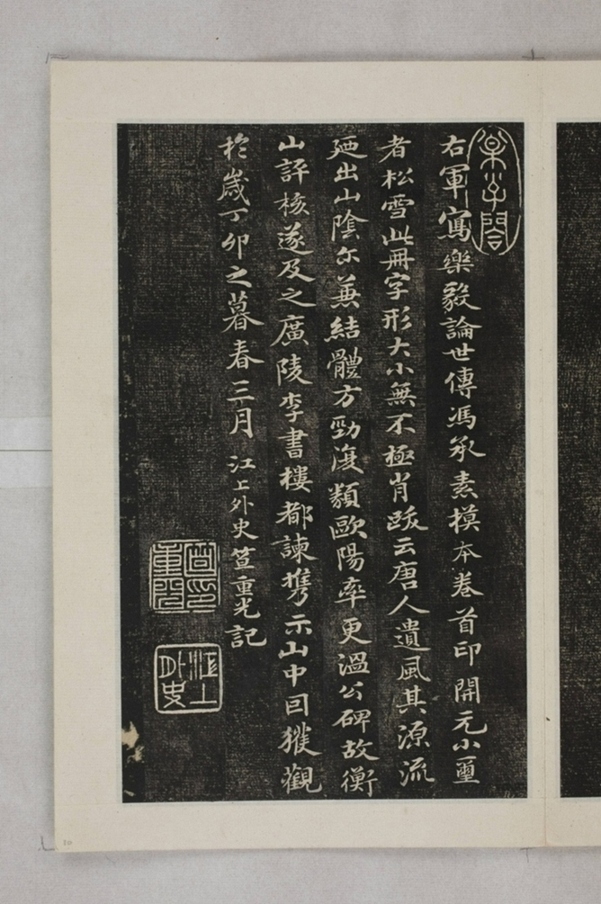 右軍寫樂毅論世傳馮承素模本卷首印開元小璽
者松雪此冊字形大小無不極肖跋云唐人遺風其源流
廼出山陰尓蕪結體方勁渡類歐陽率更溫公碑故衡
山評核遂及之廣陵李書樓都諫攜示山中囙獲觀
扵嵗丁卯之暮春三月
江上外史笪重光記
笪印重光
江上外史